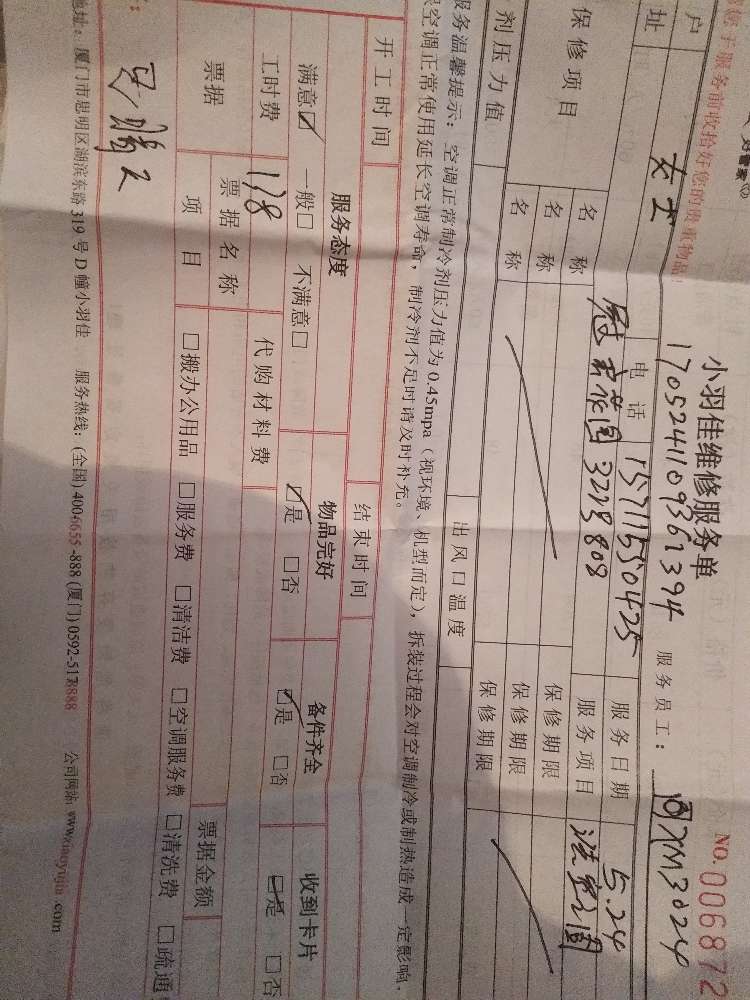 小羽佳维修服务单
NO. 006872
便于服务前收拾好您的贵重物品!
1705241109361394 服务员工: XM3024
户 女士 电话 15711550425 服务日期 5.24
址 3228808 服务项目
保修项目 名称 保修期限
名称 保修期限
名称 保修期限
剂压力值 出风口温度
服务温馨提示: 空调正常制冷剂压力值为 0.45mpa (视环境、机型而定), 拆装过程会对空调制冷或制热造成一定影响,
空调正常使用延长空调寿命, 制冷剂不足时请及时补充。
开工时间 结束时间
服务态度 物品完好 备件齐全 收到卡片
满意☑ 一般□ 不满意□ ☑是 □否 ☑是 □否 ☑是 □否
工时费 118 代购材料费
票据 票据名称 票据金额
项目 □搬办公用品 □服务费 □清洁费 □空调服务费 □清洗费 □疏通
地址: 厦门市思明区湖滨东路 319 号 D 幢小羽佳 服务热线: (全国) 400-6655-888 (厦门) 0592-5178888 公司网站: www.xiaoyujia.com